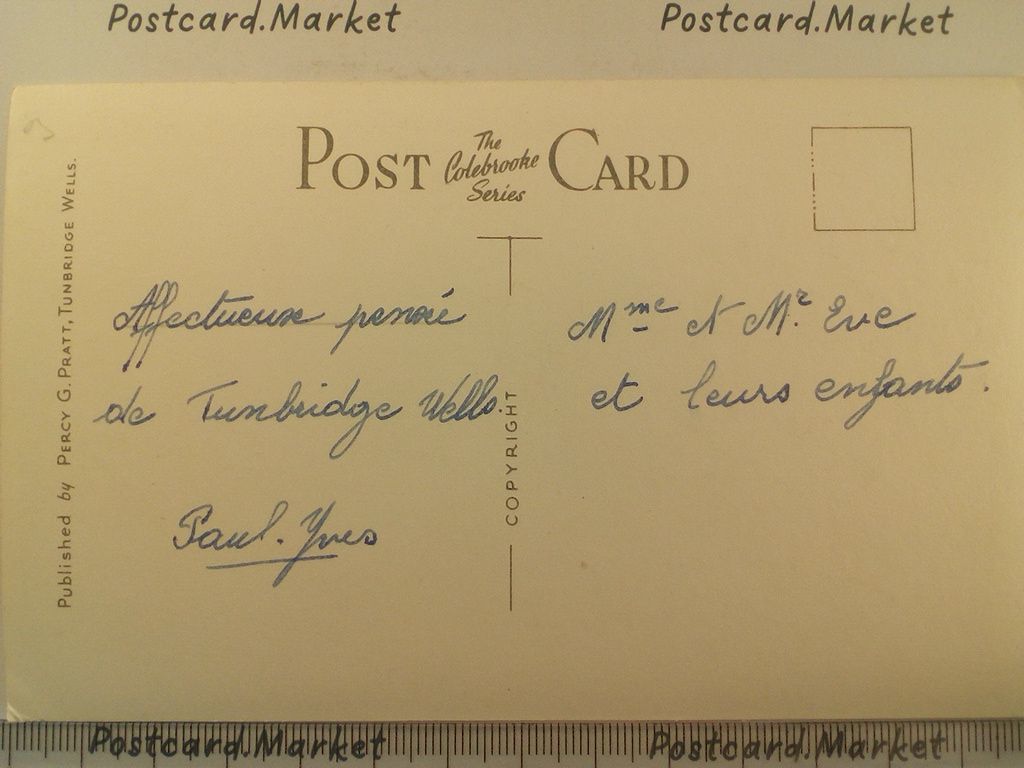 Postcard.Market
Postcard.Market
POST The Colebrooke Series CARD
Published by PERCY G. PRATT, TUNBRIDGE WELLS.
Affectueuse pensée
de Tunbridge Wells.
Paul-Yves
COPYRIGHT
Mme et Mr. Eve
et leurs enfants.
Postcard.Market
Postcard.Market